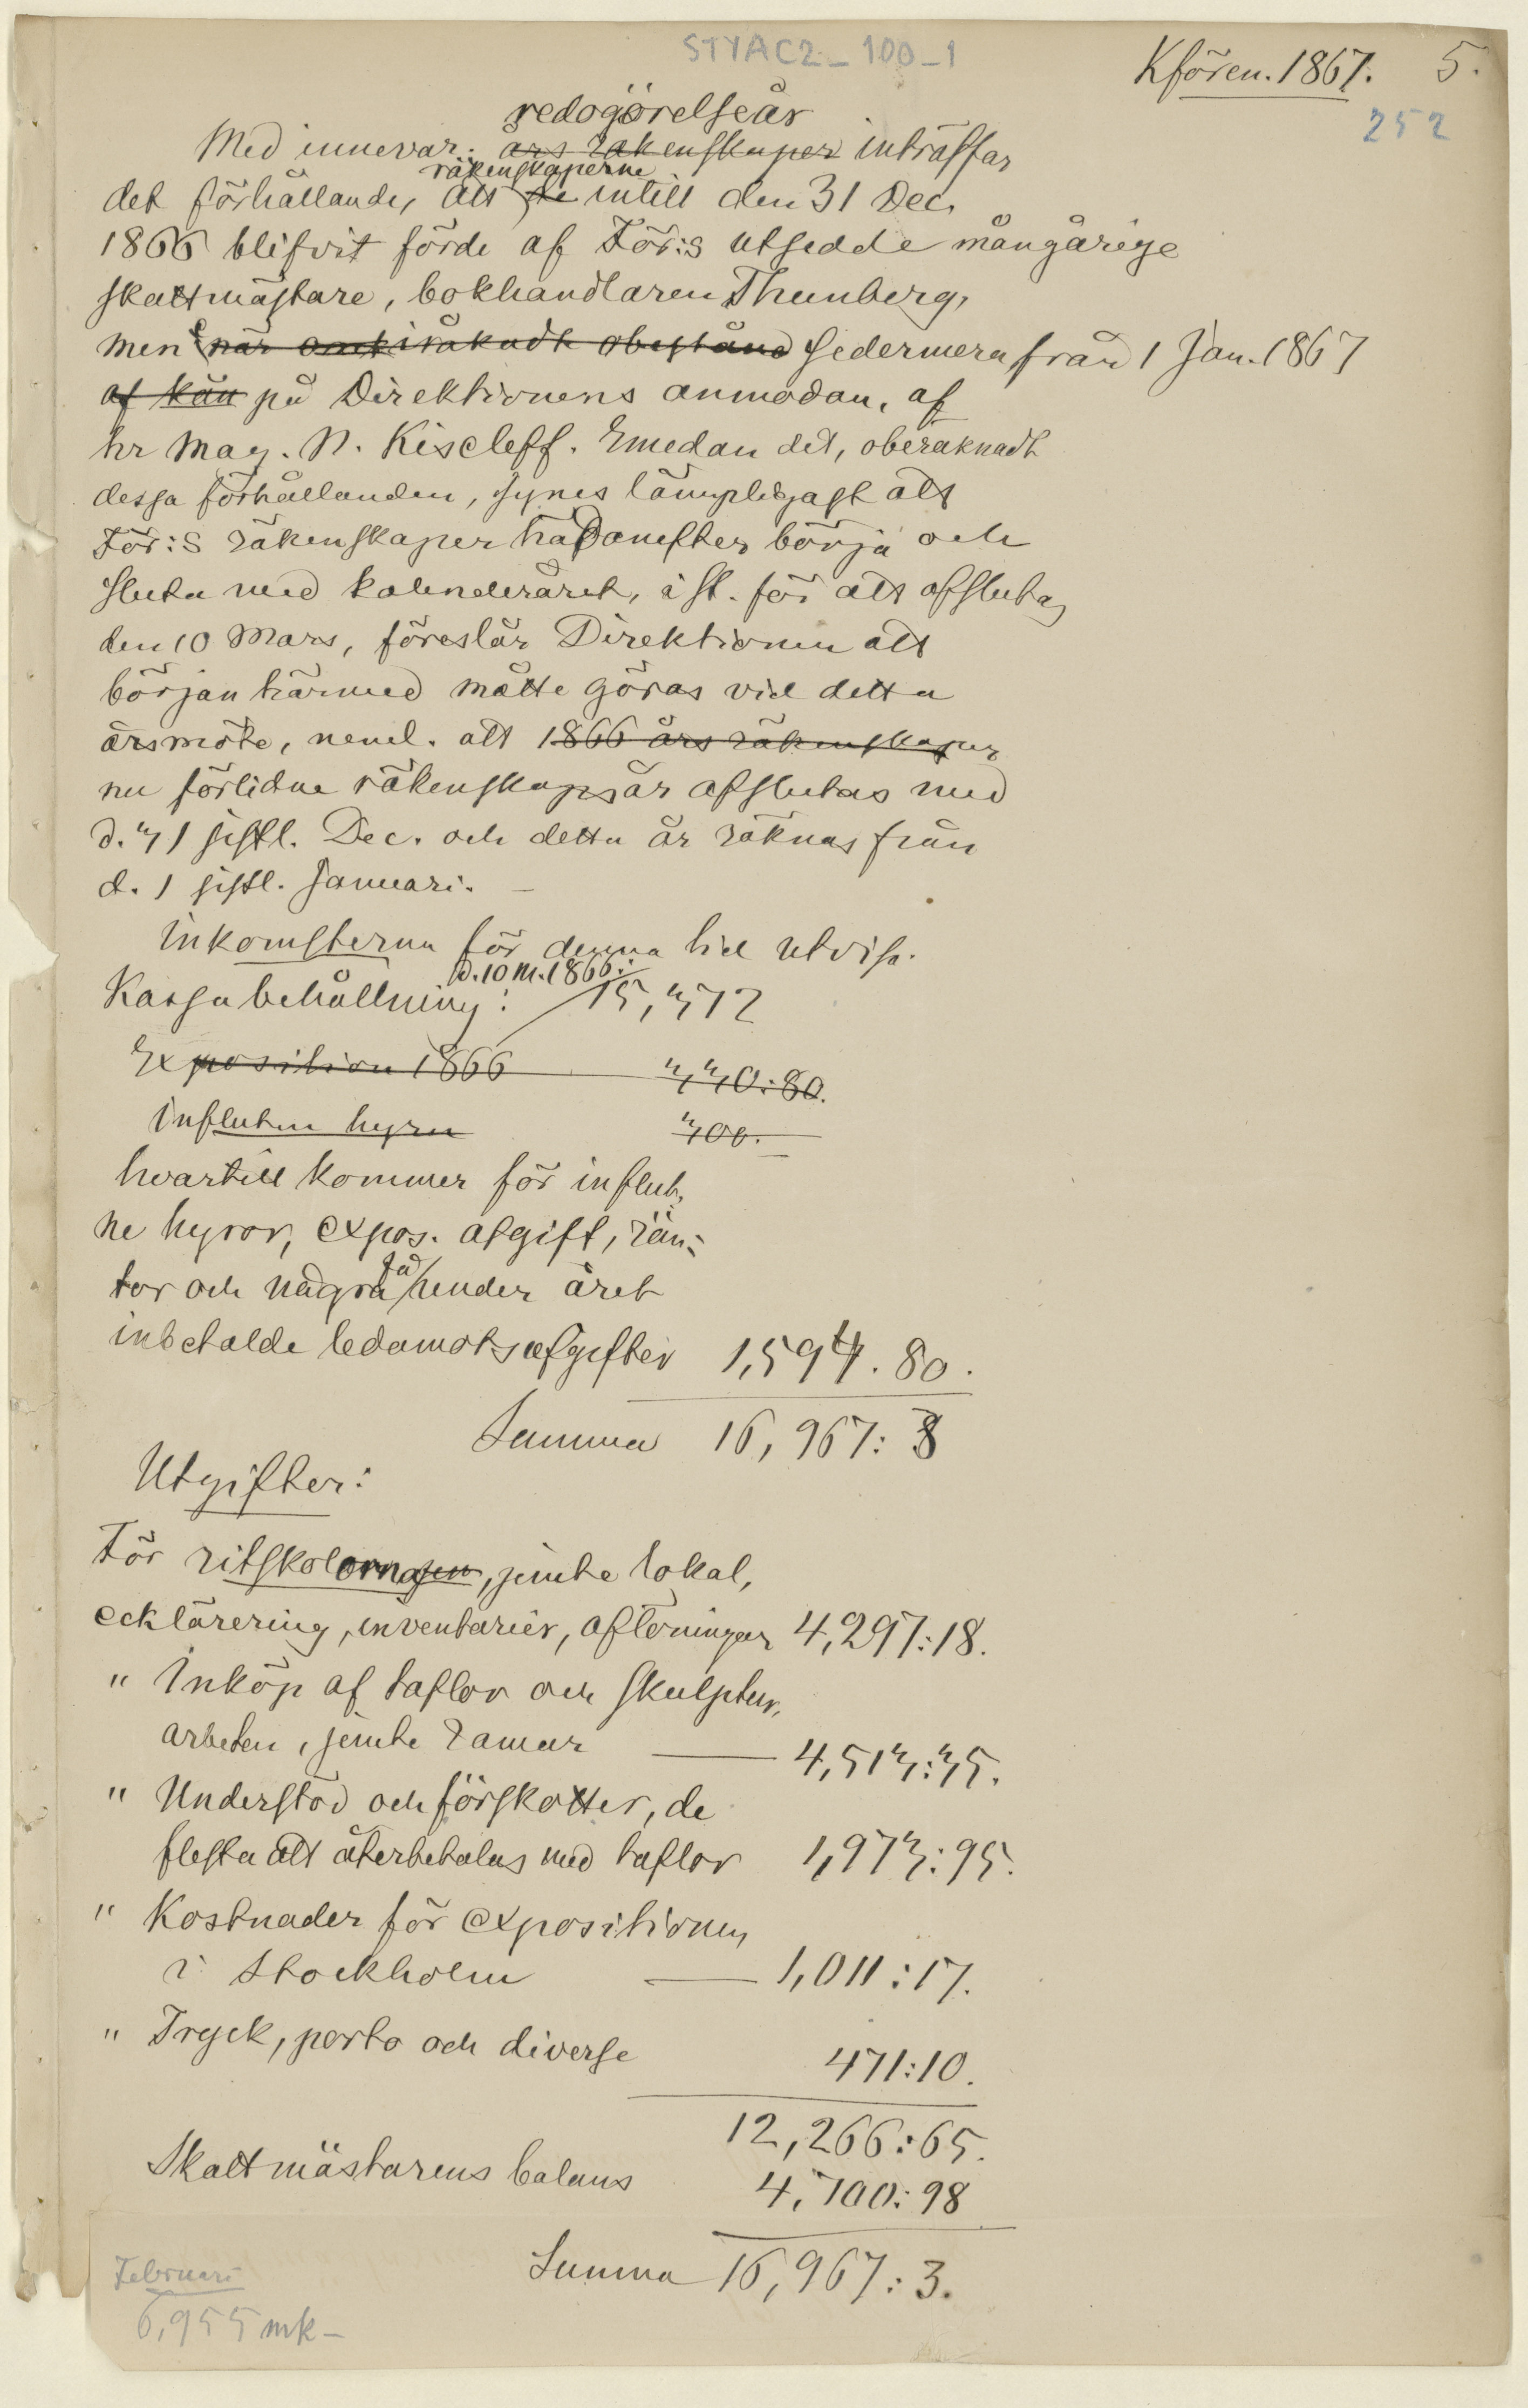 STYAC2_100_1
Kfören. 1867. 5.
252
redogörelseår
Med innevar. års räkenskaper inträffar
räkenskaperne
det förhållande, att de intill den 31 Dec.
1866 blifvit förde af För:s utsedde mångårige
skattmästare, bokhandlaren Thunberg,
men när obestånd sedermera från 1 Jan. 1867
af kän på Direktionens anmodan, af
hr Mag. N. Kiseleff. Emedan det, oberäknadt
dessa förhållanden, synes lämpligast att
För:s räkenskaper hädanefter börja och
sluta med kalenderåret, i st. för att afslutas
den 10 Mars, föreslår Direktionen att
början härmed måtte göras vid detta
årsmöte, neml. att 1866 års räkenskaper
nu förlidne räkenskapsår afslutas med
d. 31 sistl. Dec. och detta år räknas från
d. 1 sistl. Januari. –
Inkomsterna för denna tid utvisa.
d. 10 M. 1866:
Kassabehållning: 15,372
Exposition 1866 330:80.
Influten hyra 300.–
hvartill kommer för influt-
ne hyror, expos. afgift, rän-
få
tor och några under året
inbetalde ledamotsafgifter 1,594.80.
Summa 16,967: 3
Utgifter:
För ritskolorna, jemte lokal,
ecklärering, inventarier, aflöningar 4,297:18.
" Inköp af taflor och skulptur-
arbeten, jemte ramar — 4,513:35.
" Understöd och förskotter, de
flesta att återbetalas med taflor 1,973:95.
" Kostnader för expositionen
i Stockholm — 1,011:17.
" Tryck, porto och diverse
471:10.
12,266:65.
Skattmästarens balans 4,700:98
Summa 16,967:3.
Februari
6,955 mk –